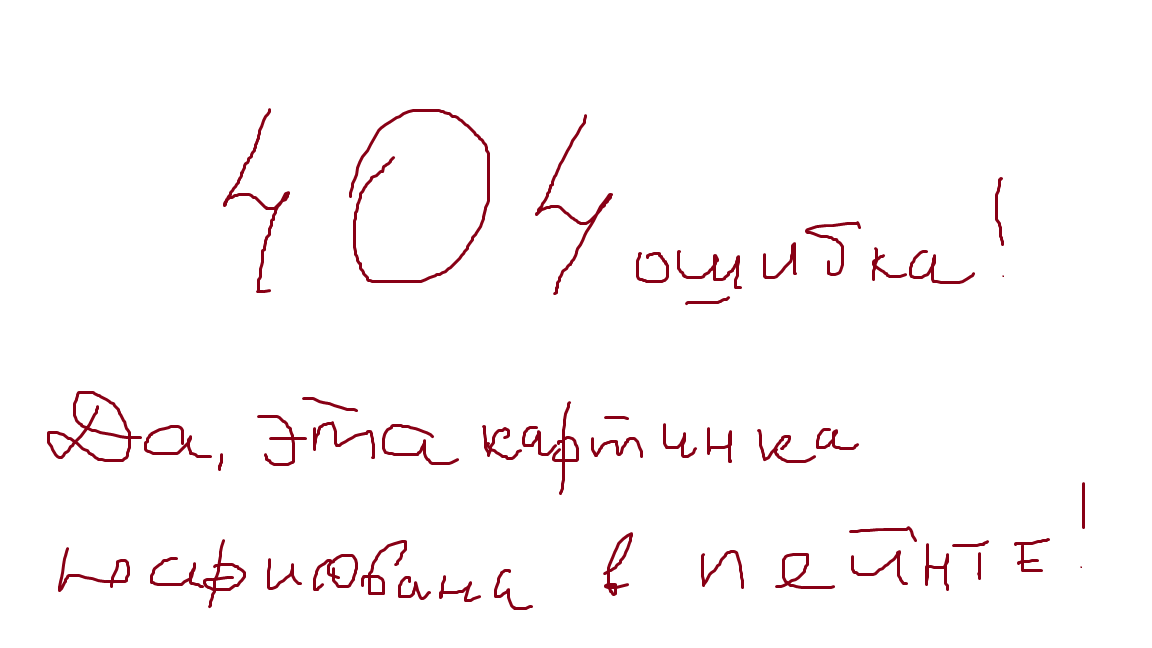 404 ошибка!
Да, эта картинка
нарисована в пейнте!